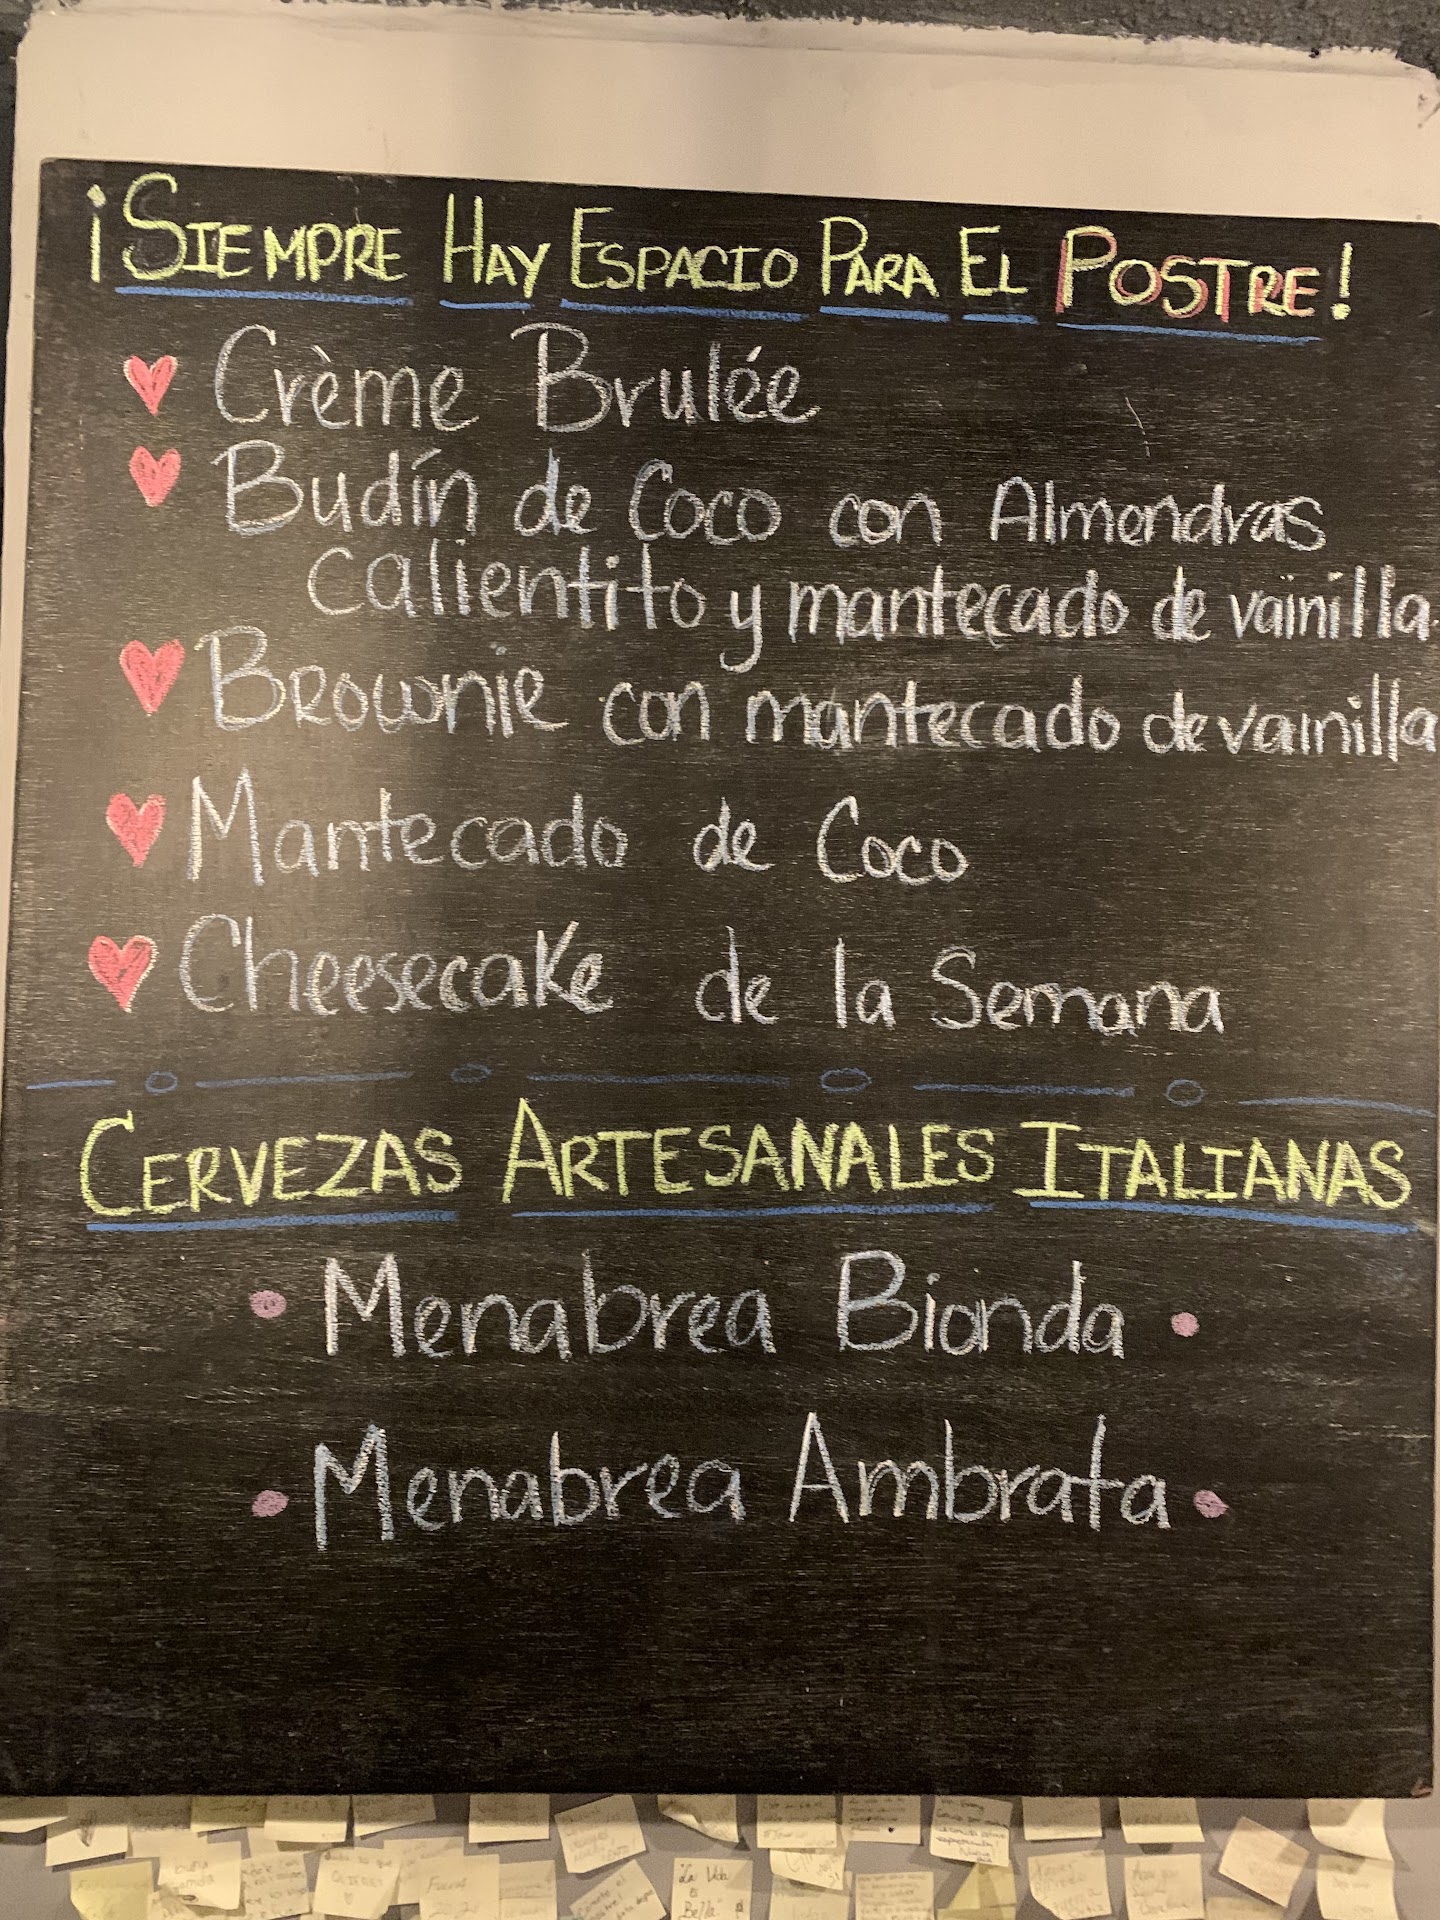 ¡SIEMPRE HAY ESPACIO PARA EL POSTRE!
Crème Brulée
Budín de Coco con Almendras
calientito y mantecado de vainilla
Brownie con mantecado de vainilla
Mantecado de Coco
Cheesecake de la Semana
CERVEZAS ARTESANALES ITALIANAS
Menabrea Bionda
Menabrea Ambrata
La Vida
Es
Bella